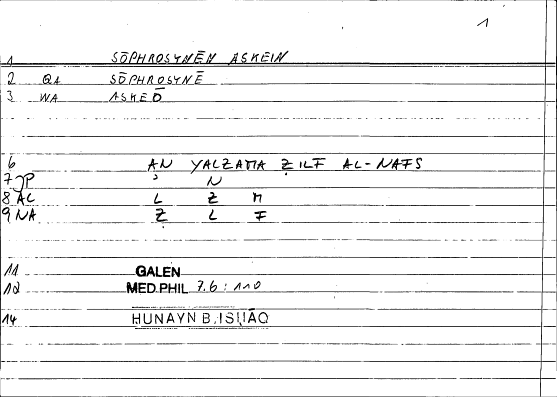 1
1 SŌPHROSYNĒN ASKEIN
2 QA SŌPHROSYNĒ
3 WA ASKEŌ
6 AN YALZAMA ẒILF AL-NAFS
7 JP ʾ N
8 AL L Z M
9 NA Ẓ L F
11 GALEN
12 MED.PHIL 7.6 : 110
14 HUNAYN B.ISḤĀQ